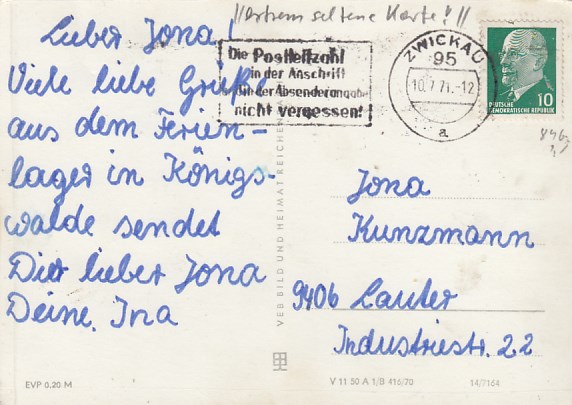 !!extrem seltene Karte!!!
Lieber Jona!
Viele liebe Grüße
aus dem Ferien-
lager in Königs-
walde sendet
Dir lieber Jona
Deine Ina
Die Postleitzahl
in der Anschrift
und in der Absenderangabe
nicht vergessen!
ZWICKAU
95
10.7.71.-12
a
DEUTSCHE
DEMOKRATISCHE REPUBLIK
10
Jona
Kunzmann
9406 Lauter
Industriestr. 22
VEB BILD UND HEIMAT REICHENBACH
EVP 0,20 M
V 11 50 A 1/B 416/70
14/7164